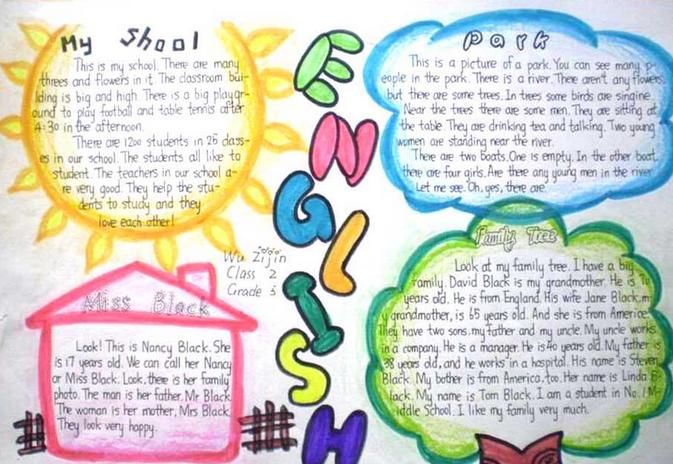 My Shool
This is my school. There are many
threes and flowers in it. The classroom bui-
lding is big and high. There is a big playgr-
ound to play football and table tennis after
4:30 in the afternoon.
There are 1200 students in 25 class-
es in our school. The students all like to
student. The teachers in our school a-
re very good. They help the stu-
dents to study and they
love each other!
ENGLISH
Park
This is a picture of a park. You can see many p-
eople in the park. There is a river. There aren't any flowers,
but there are some trees. In trees some birds are singine.
Near the trees there are some men. They are sitting at
the table. They are drinking tea and talking. Two young
women are standing near the river.
There are two boats. One is empty. In the other boat,
there are four girls. Are there any young men in the river
Let me see. Oh, yes, there are.
Wu Zijin
Class 2
Grade 3
Miss Black
Look! This is Nancy Black. She
is 17 years old. We can call her Nancy
or Miss Black. Look, there is her family
photo. The man is her father, Mr Black
The woman is her mother, Mrs Black.
They look very happy.
Family Tree
Look at my family tree. I have a big
family. David Black is my grandmother. He is 70
years old. He is from England. His wife Jane Black, m
y grandmother, is 65 years old. And she is from America.
They have two sons, my father and my uncle. My uncle works
in a company. He is a manager. He is 40 years old. My father is
38 years old, and he works in a hospital. His name is Steven
Black. My bother is from America, too. Her name is Linda B-
lack. My name is Tom Black. I am a student in No.1 M-
iddle School. I like my family very much.